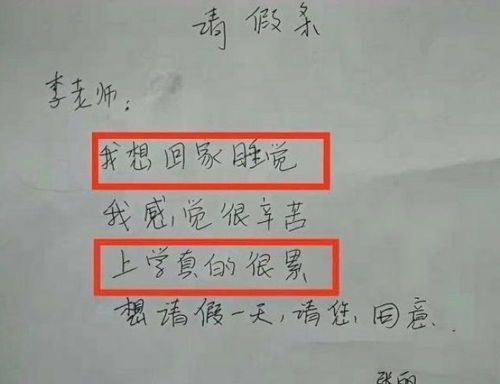 请假条
李老师：
我想回家睡觉
我感觉很辛苦
上学真的很累
想请假一天，请您，同意．
张